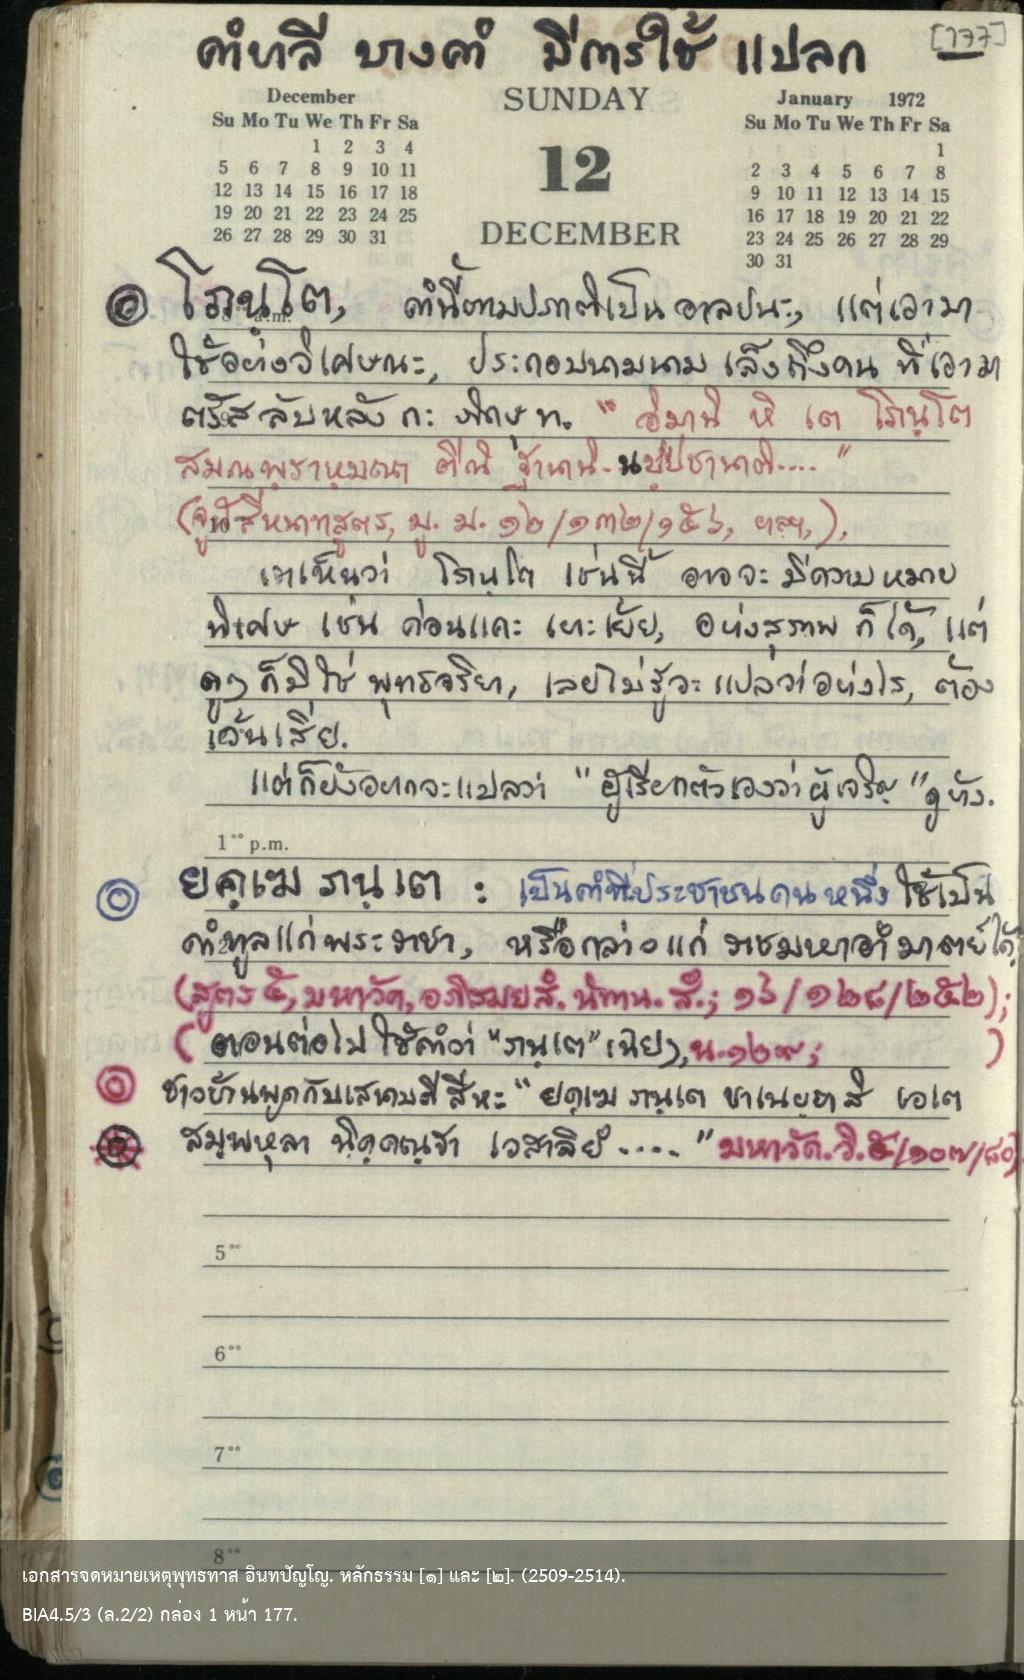 คำบาลี บางคำ มีการใช้ แปลก [177]
December
Su Mo Tu We Th Fr Sa
1 2 3 4
5 6 7 8 9 10 11
12 13 14 15 16 17 18
19 20 21 22 23 24 25
26 27 28 29 30 31
SUNDAY
12
DECEMBER
January 1972
Su Mo Tu We Th Fr Sa
1
2 3 4 5 6 7 8
9 10 11 12 13 14 15
16 17 18 19 20 21 22
23 24 25 26 27 28 29
30 31
โภนฺโต, คำนี้ตามปรกติเป็น อาลปนะ, แต่เอามา
ใช้อย่างวิเศษณะ, ประกอบนามนาม เล็งถึงคน ที่เอามา
ตรัส ลับหลัง กะ ภิกษุ ท. "อิมานิ หิ เต โภนฺโต
สมณพฺราหฺมณา ตีณิ ฐานานิ นปฺปชานาติ...."
(จูฬสีหนาทสูตร, มู. ม. ๑๒/๑๓๒/๑๕๖, ฯลฯ,).
เราเห็นว่า โภนฺโต เช่นนี้ อาจจะ มีความหมาย
พิเศษ เช่น ค่อนแคะ เยาะเย้ย, อย่างสุภาพ ก็ได้, แต่
ดูๆ ก็มิใช่ พุทธจริยา, เลยไม่รู้จะแปลว่าอย่างไร, ต้อง
เว้นเสีย.
แต่ก็ยังอยากจะแปลว่า "ผู้เรียกตัวเองว่าผู้เจริญ" ดูบ้าง.
1°° p.m.
ยคฺเฆ ภนฺเต : เป็นคำที่ประชาชนคนหนึ่ง ใช้เป็น
คำทูลแก่พระราชา, หรือกล่าวแก่ ราชมหาอำมาตย์ได้
(สูตร ๕, มหาวัค, อภิสมยสํ. นิทาน. สํ.; ๑๖/๑๒๘/๒๕๒);
(ตอนต่อไป ใช้คำว่า "ภนฺเต" เฉยๆ, น.๑๒๙; )
ชาวบ้านพูดกับเสนาบดี สีหะ "ยคฺเฆ ภนฺเต ชาเนยฺยาสิ เอเต
สมฺพหุลา นิคฺคณฺฐา เวสาลิยํ ...." มหาวัค. วิ. ๕/๑๐๗/๘๐)
5°°
6°°
7°°
8°°
เอกสารจดหมายเหตุพุทธทาส อินทปัญโญ. หลักธรรม [๑] และ [๒]. (2509-2514).
BIA4.5/3 (ล.2/2) กล่อง 1 หน้า 177.